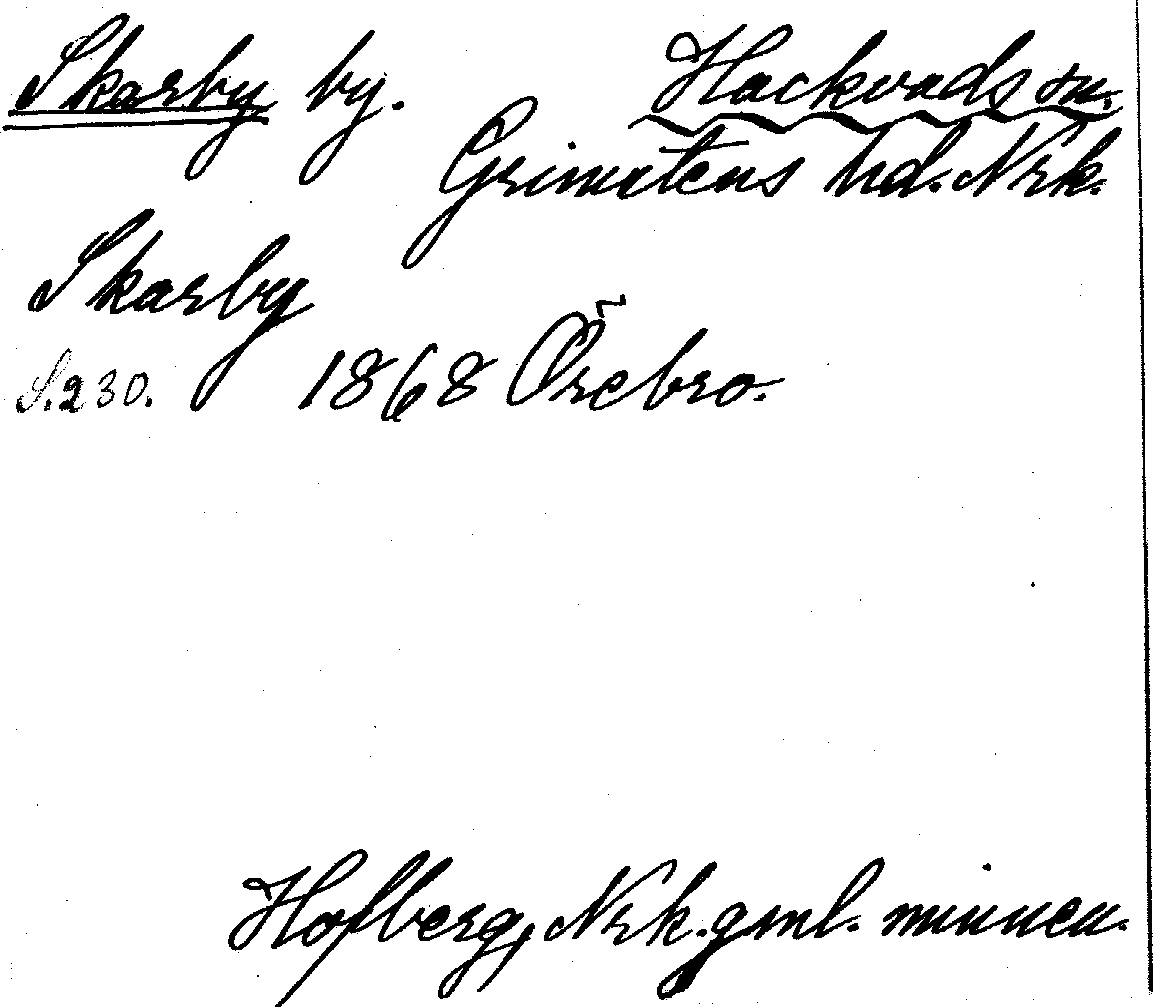 Skarby by. Hackvads sn.
Grimstens hd. Nrk.
Skarby
S. 230. 1868 Örebro.
Hofberg, Nrk. gml. minnen.